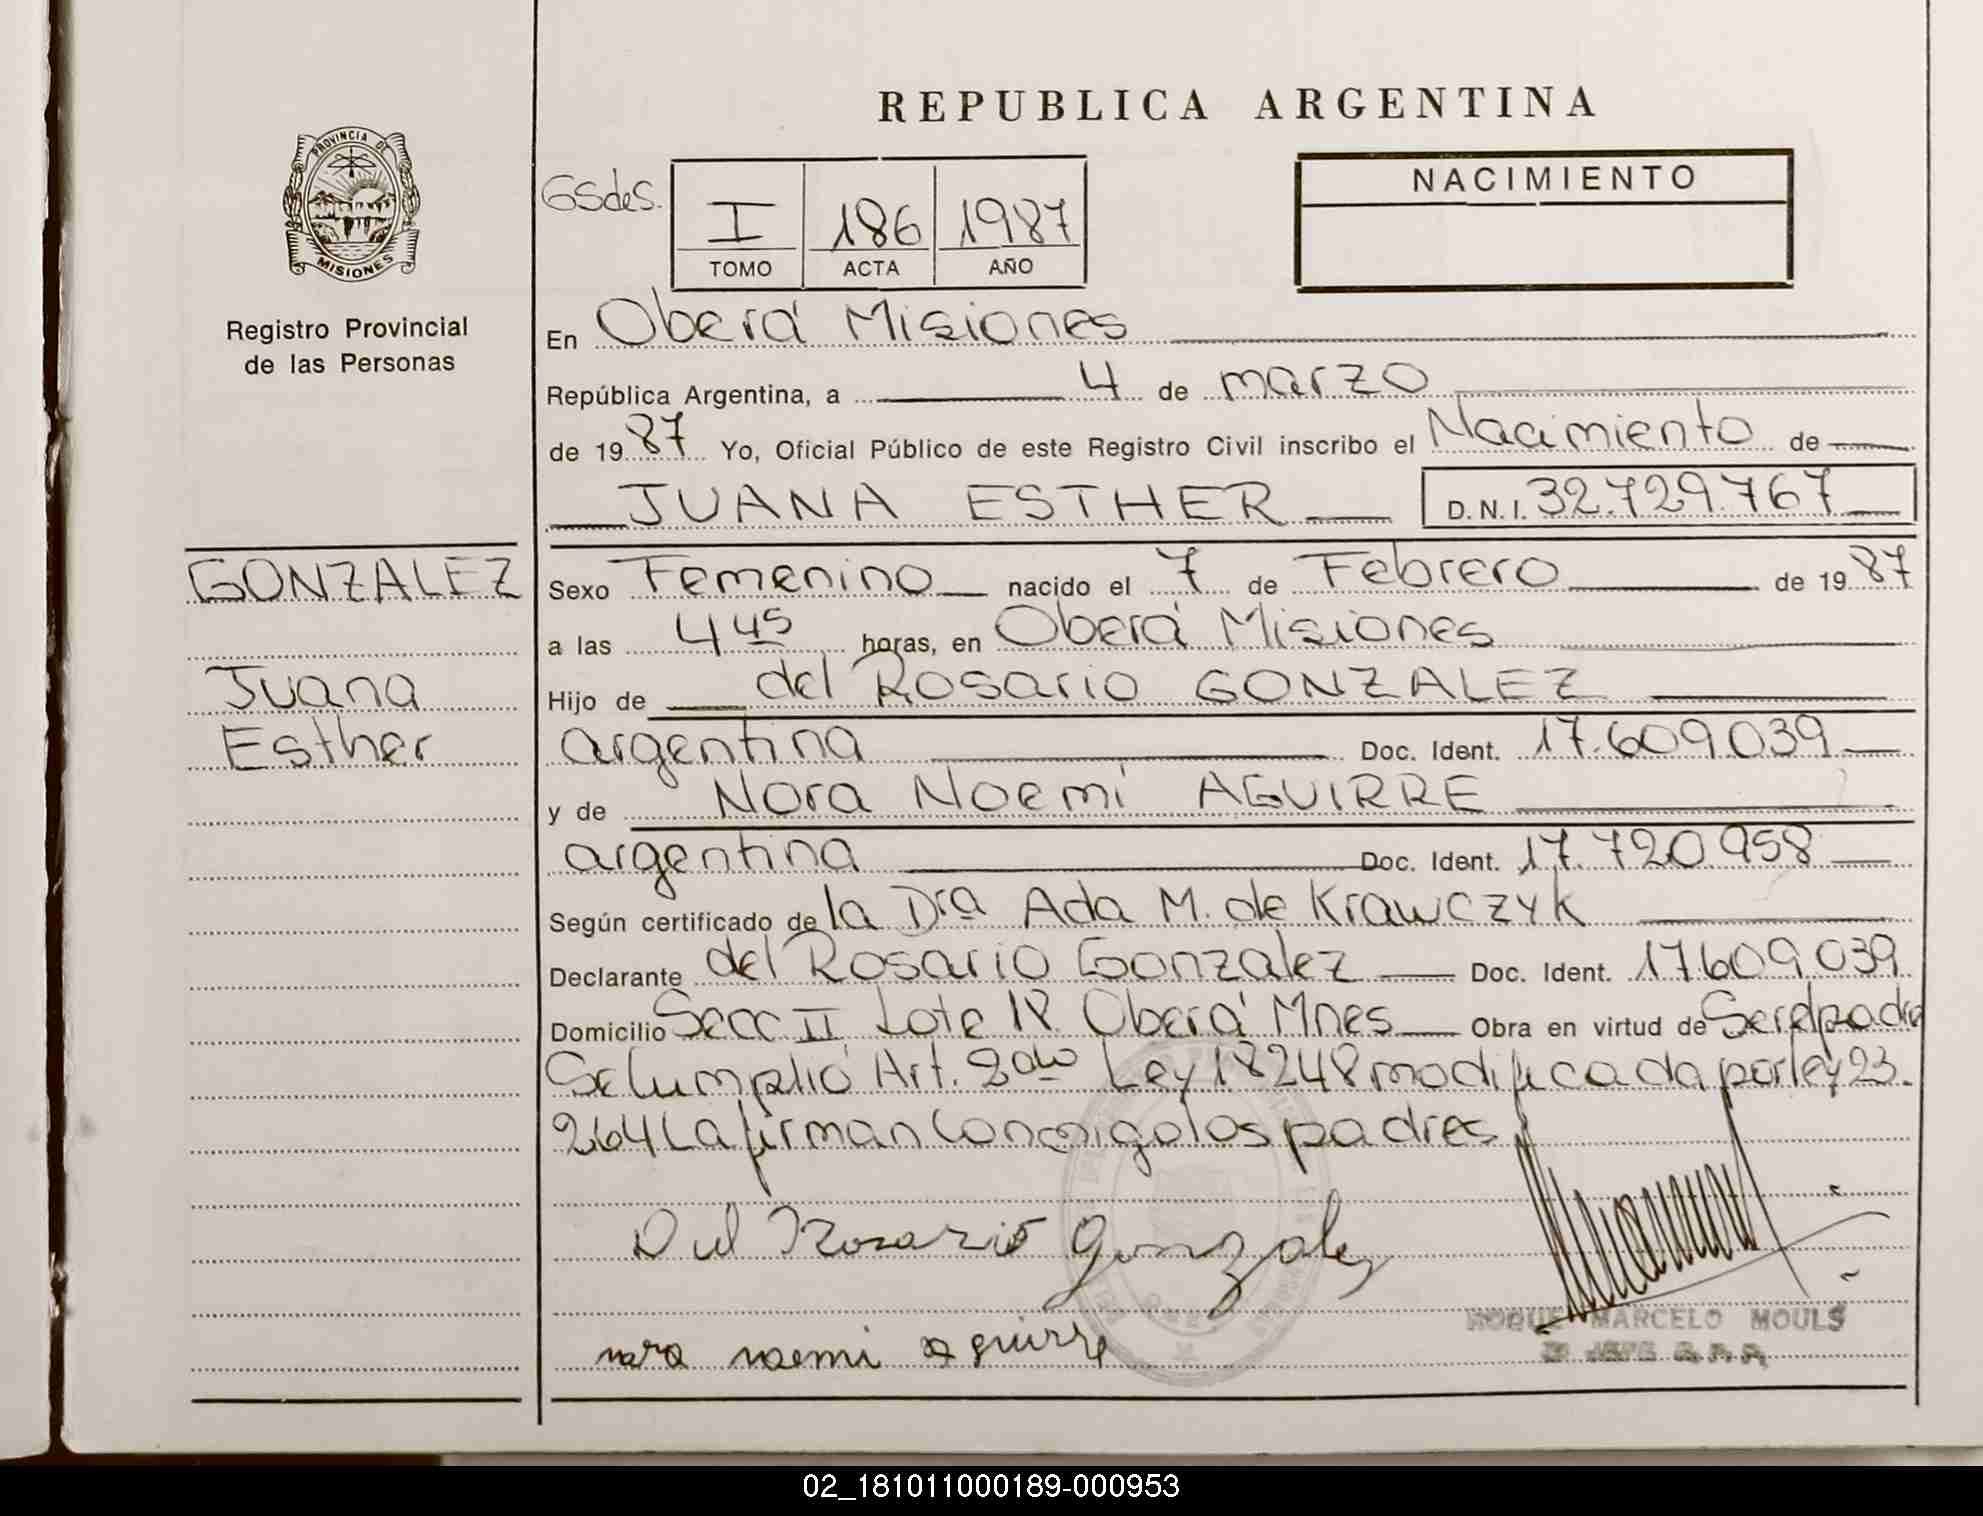 REPUBLICA ARGENTINA
PROVINCIA DE
MISIONES
Registro Provincial
de las Personas
GSdeS.
I 186 1987
TOMO ACTA AÑO
NACIMIENTO
En Oberá Misiones
República Argentina, a 4 de marzo
de 1987 Yo, Oficial Público de este Registro Civil inscribo el Nacimiento de
JUANA ESTHER D.N.I. 32.729.767
GONZALEZ
Juana
Esther
Sexo Femenino nacido el 7 de Febrero de 1987
a las 4 45 horas, en Oberá Misiones
Hijo de del Rosario GONZALEZ
argentina Doc. Ident. 17.609.039
y de Nora Noemí AGUIRRE
argentina Doc. Ident. 17.720.958
Según certificado de la Dra Ada M. de Krawczyk
Declarante del Rosario Gonzalez Doc. Ident. 17609039
Domicilio Secc II Lote 18 Oberá Mnes Obra en virtud de Ser el padre
Se Cumplió Art. 2do Ley 18248 modificada por ley 23.
264 La firman Conmigo los padres
Del Rosario Gonzalez
nora noemi aguirre
ROQUE MARCELO MOULS
02_181011000189-000953